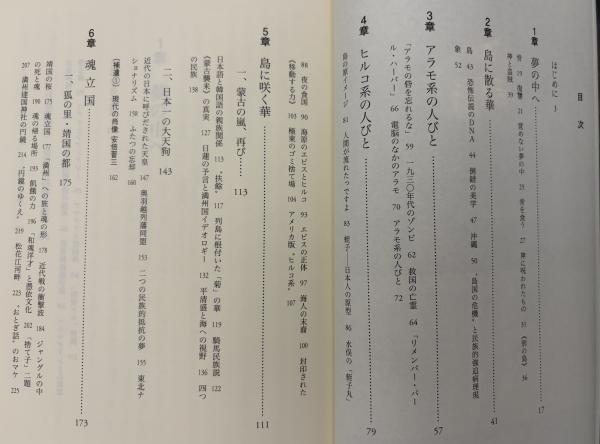 目次
はじめに 3
1章 夢の中へ……17
骨 19 復讐 21 覚めない夢の中 25 骨を食う 27 陣に呪われたもの 31 《別の島》 36
神と盗賊 39
2章 島に散る華……41
島 43 恐怖伝説のDNA 44 倒錯の美学 47 沖縄 50 〝島国の危機〟と民族的強迫病理現
象 52
3章 アラモ系の人びと……57
「アラモの砦を忘れるな」 59 一九三〇年代のゾンビ 62 救国の亡霊 64 「リメンバー・パー
ル・ハーバー」 66 電脳のなかのアラモ 70 アラモ系の人びと 72
4章 ヒルコ系の人びと……79
島の原イメージ 81 人間が流れたっですよ 83 蛭子―日本人の原型 86 水俣の「蛭子丸」
88 夜の食国 90 海原のエビスとヒルコ 93 エビスの正体 97 海人の末裔 100 封印された
《稼動する力》 103 極東のゴミ捨て場 104 アメリカ版〝ヒルコ系〟 107
5章 島に咲く華……111
一、蒙古の嵐、再び……113
日本語と韓国語の親族関係 113 〝扶餘〟 117 列島に根付いた「菊」の華 119 騎馬民族説 122
《蒙古襲来》の真実 127 日蓮の予言と満州国イデオロギー 132 平清盛と海への視野 136 四つ
の民族 138
二、日本一の大天狗……143
近代の日本に呼びだされた天皇 147 奥羽越列藩同盟 153 二つの民族的抵抗の夢 155 東北ナ
ショナリズム 158 ふたつの忘却 160
〔補遺①〕 現代の肖像 安倍晋三 162
6章 魂立国……173
一、狐の里・靖国の都……175
靖国の桜 175 魂立国 177 「満州」への旅と魂の形 178 近代戦の衝撃波 184 ジャングルの中
の死と魂 190 魂の帰る場所 193 飢餓の力 196 「和魂洋才」と憑依文化 202 〝捨て子〟二題
207 満州建国神社の円鏡 214 〝円鏡のゆくえ〟 219 松花江河畔 223 〝おとぎ話〟のおマケ
225